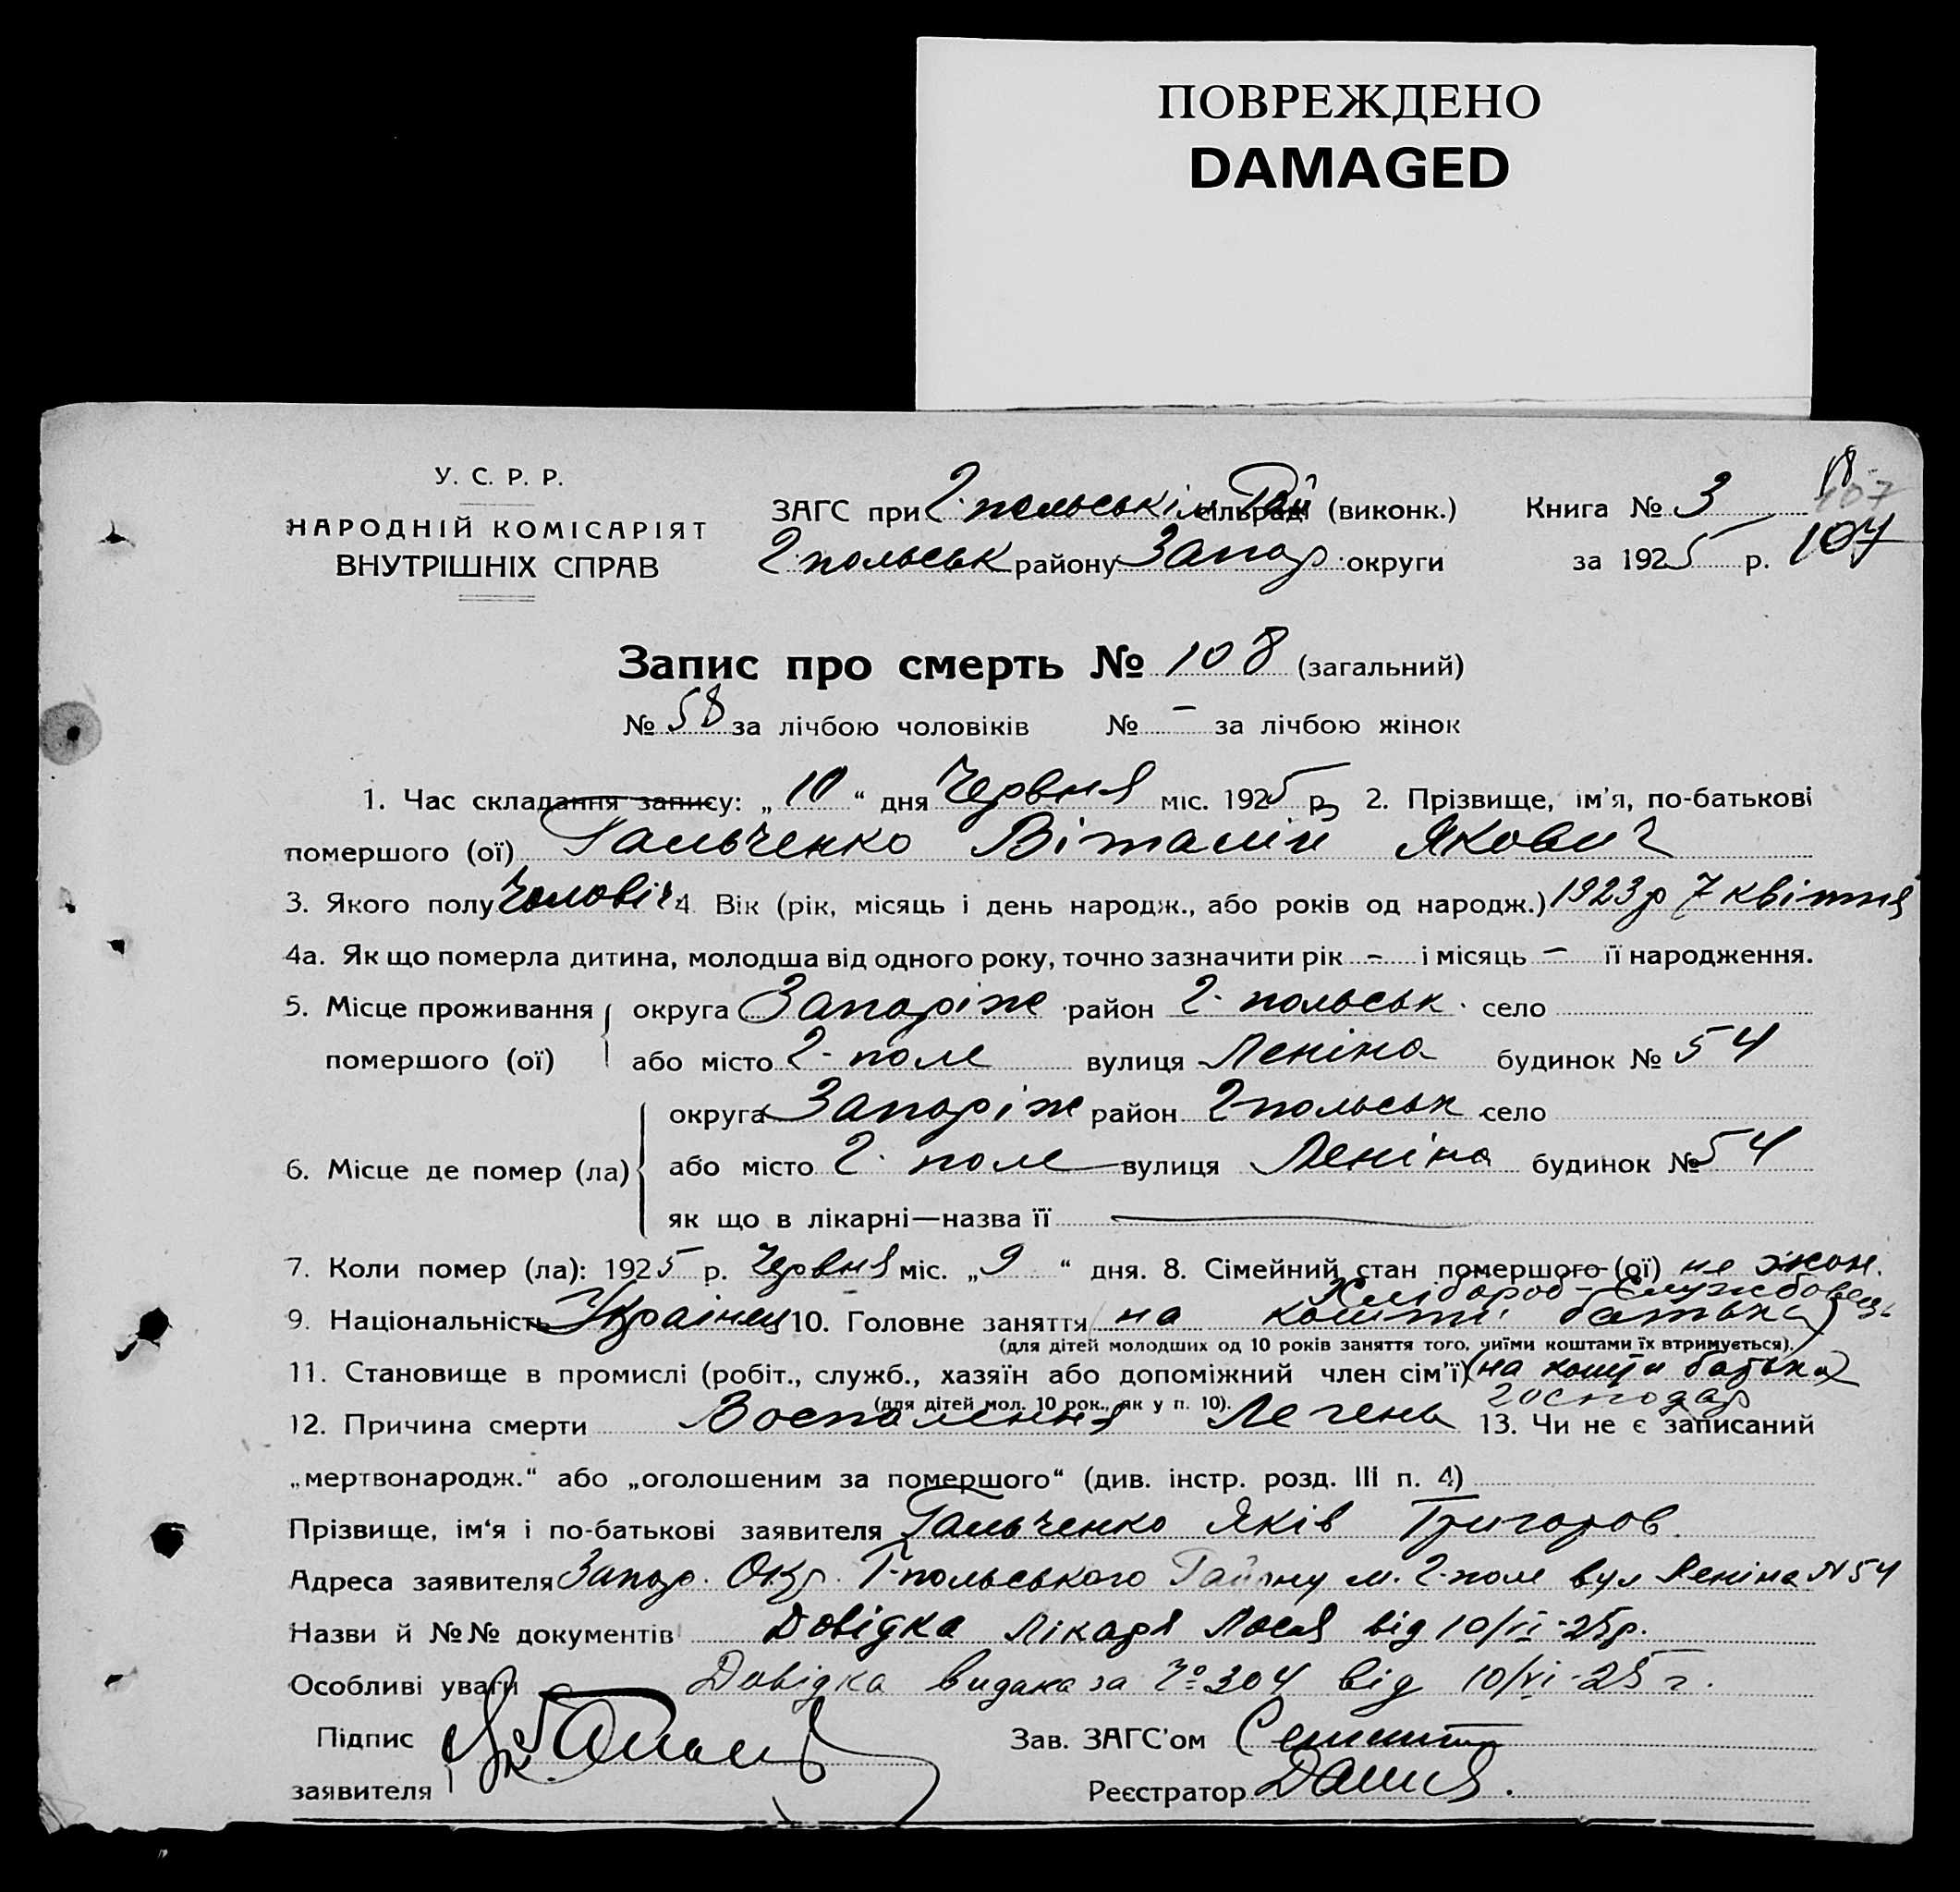 ПОВРЕЖДЕНО
DAMAGED
У. С. Р. Р.
НАРОДНІЙ КОМІСАРІЯТ
ВНУТРІШНІХ СПРАВ
ЗАГС при Г-польськім Рай сільраді (виконк.)
Г-польськ району Запор округи
Книга № 3
107
за 1925 р. 107
Запис про смерть № 108 (загальний)
№ 58 за лічбою чоловіків № – за лічбою жінок
1. Час складання запису: „ 10 “ дня Червня міс. 1925 р. 2. Прізвище, ім'я, по-батькові
помершого (ої) Гальченко Віталій Якович
3. Якого полу Чоловіч 4 Вік (рік, місяць і день народж., або років од народж.) 1923р 7 квітня
4а. Як що померла дитина, молодша від одного року, точно зазначити рік – і місяць – її народження.
5. Місце проживання округа Запоріж район Г-польськ. село
помершого (ої) або місто Г-поле вулиця Леніна будинок № 54
округа Запоріж район Г-польськ село
6. Місце де помер (ла) або місто Г-поле вулиця Леніна будинок № 54
як що в лікарні—назва її —
7. Коли помер (ла): 1925 р. Червня міс. „ 9 “ дня. 8. Сімейний стан помершого (ої) не жон.
Хлібороб - Службовець
9. Національність Українец 10. Головне заняття (на кошти батька)
(для дітей молодших од 10 років заняття того, чиїми коштами їх втримується).
11. Становище в промислі (робіт., служб., хазяїн або допоміжний член сім'ї) (на кошти батька)
(для дітей мол. 10 рок., як у п. 10). господар
12. Причина смерти Воспалення Легень 13. Чи не є записаний
„мертвонародж.“ або „оголошеним за помершого“ (див. інстр. розд. III п. 4)
Прізвище, ім'я і по-батькові заявителя Гальченко Яків Григоров.
Адреса заявителя Запор. Окр. Г-польського Району м. Г-поле вул Леніна N 54
Назви й №№ документів Довідка Лікаря Лося від 10/VI-25р.
Особливі уваги Довідка видана за № 304 від 10/VI-25 г.
Підпис
заявителя
Зав. ЗАГС'ом
Реєстратор